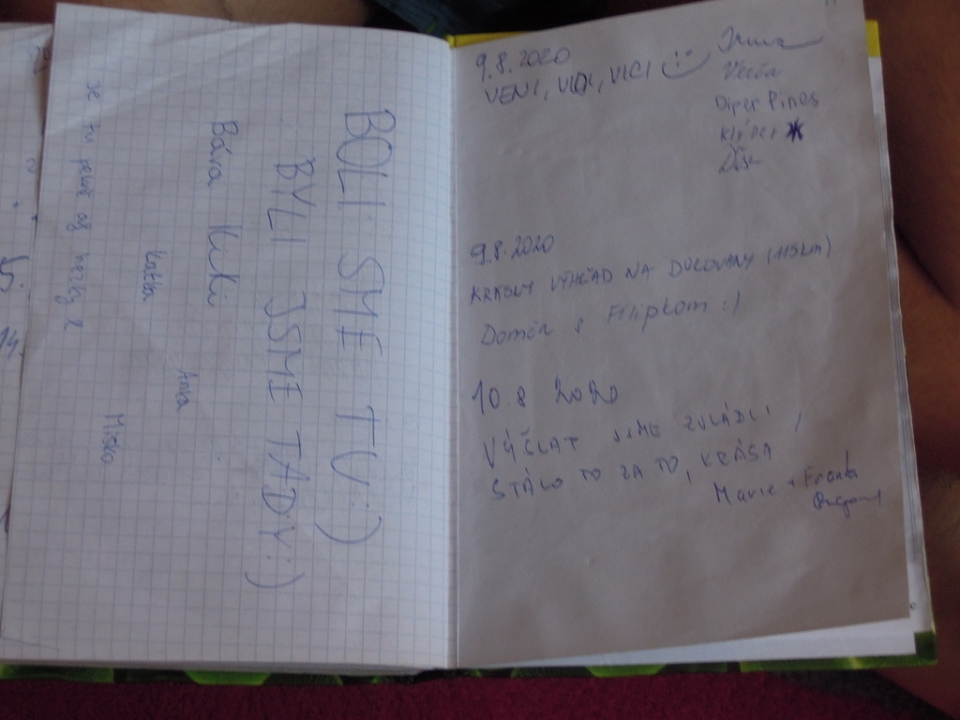 BOLI SME TU :)
BYLI JSME TADY :)
Bára Kiki
Katka
Anka
Miško
je tu pekne aj hezky
5.
14.
9.8.2020
VENI, VIDI, VICI
Diper Pines
9.8.2020
KRÁSNY VÝHĽAD NA DUKOVANY
Domča s Filipkom :)
10.8 2020
VÝŠLAP JSME ZVLÁDLI,
STÁLO TO ZA TO, KRÁSA
Marie + Franta